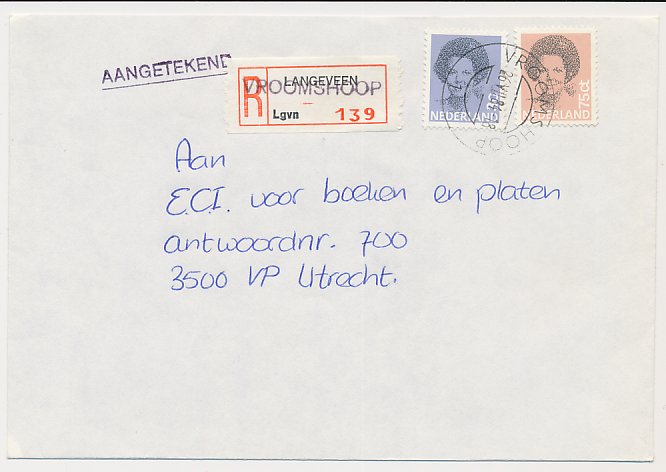 AANGETEKEND
R LANGEVEEN
VROOMSHOOP
Lgvn 139
NEDERLAND
75ct NEDERLAND
VROOMSHOOP
Aan
E.C.I. voor boeken en platen
antwoordnr. 700
3500 VP Utrecht.